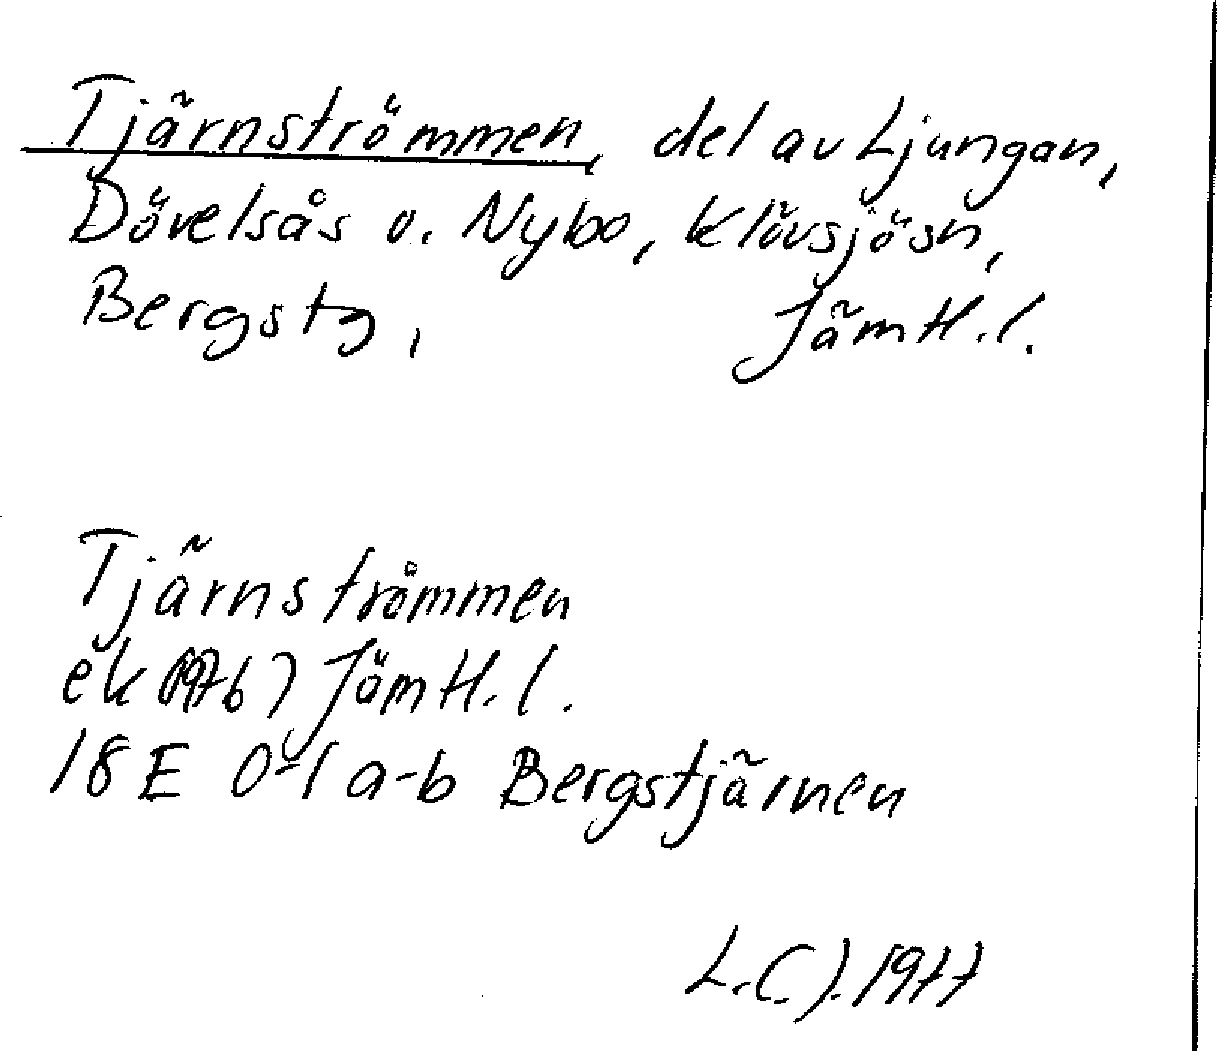 Tjärnströmmen, del av Ljungan,
Dövelsås o. Nybo, Klövsjösn,
Bergs tg, Jämtl.l.
Tjärnströmmen
ek (1976) Jämtl.l.
18E 0-1 a-b Bergstjärnen
L.C.J. 1977